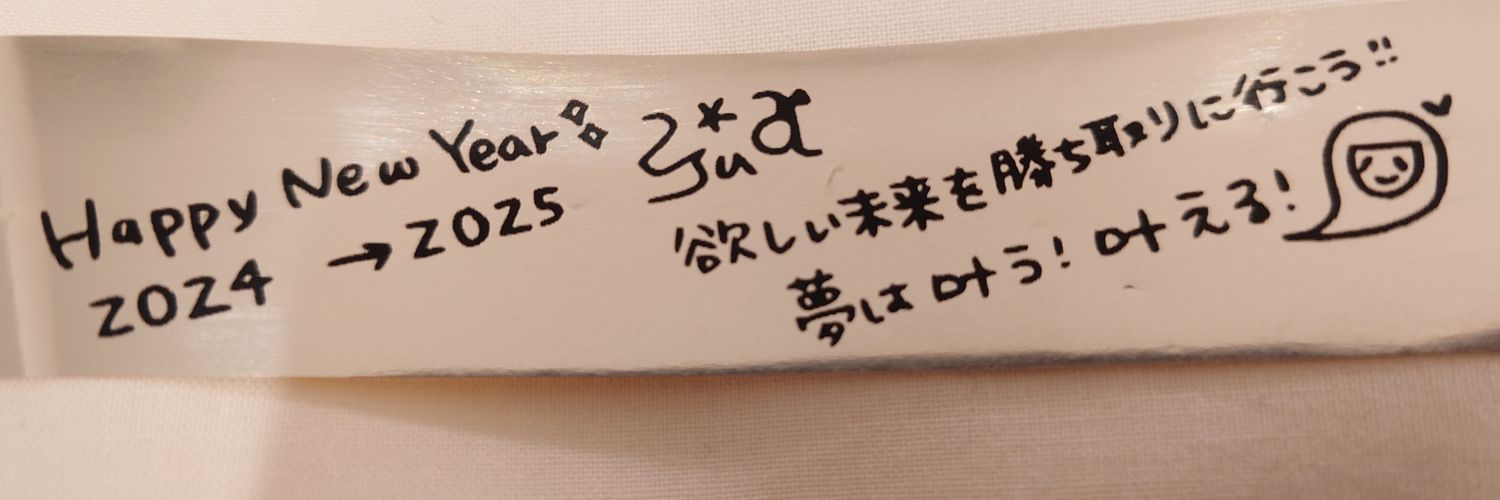 Happy New Year
2024 → 2025
欲しい未来を勝ち取りに行こう!!
夢は叶う! 叶える!